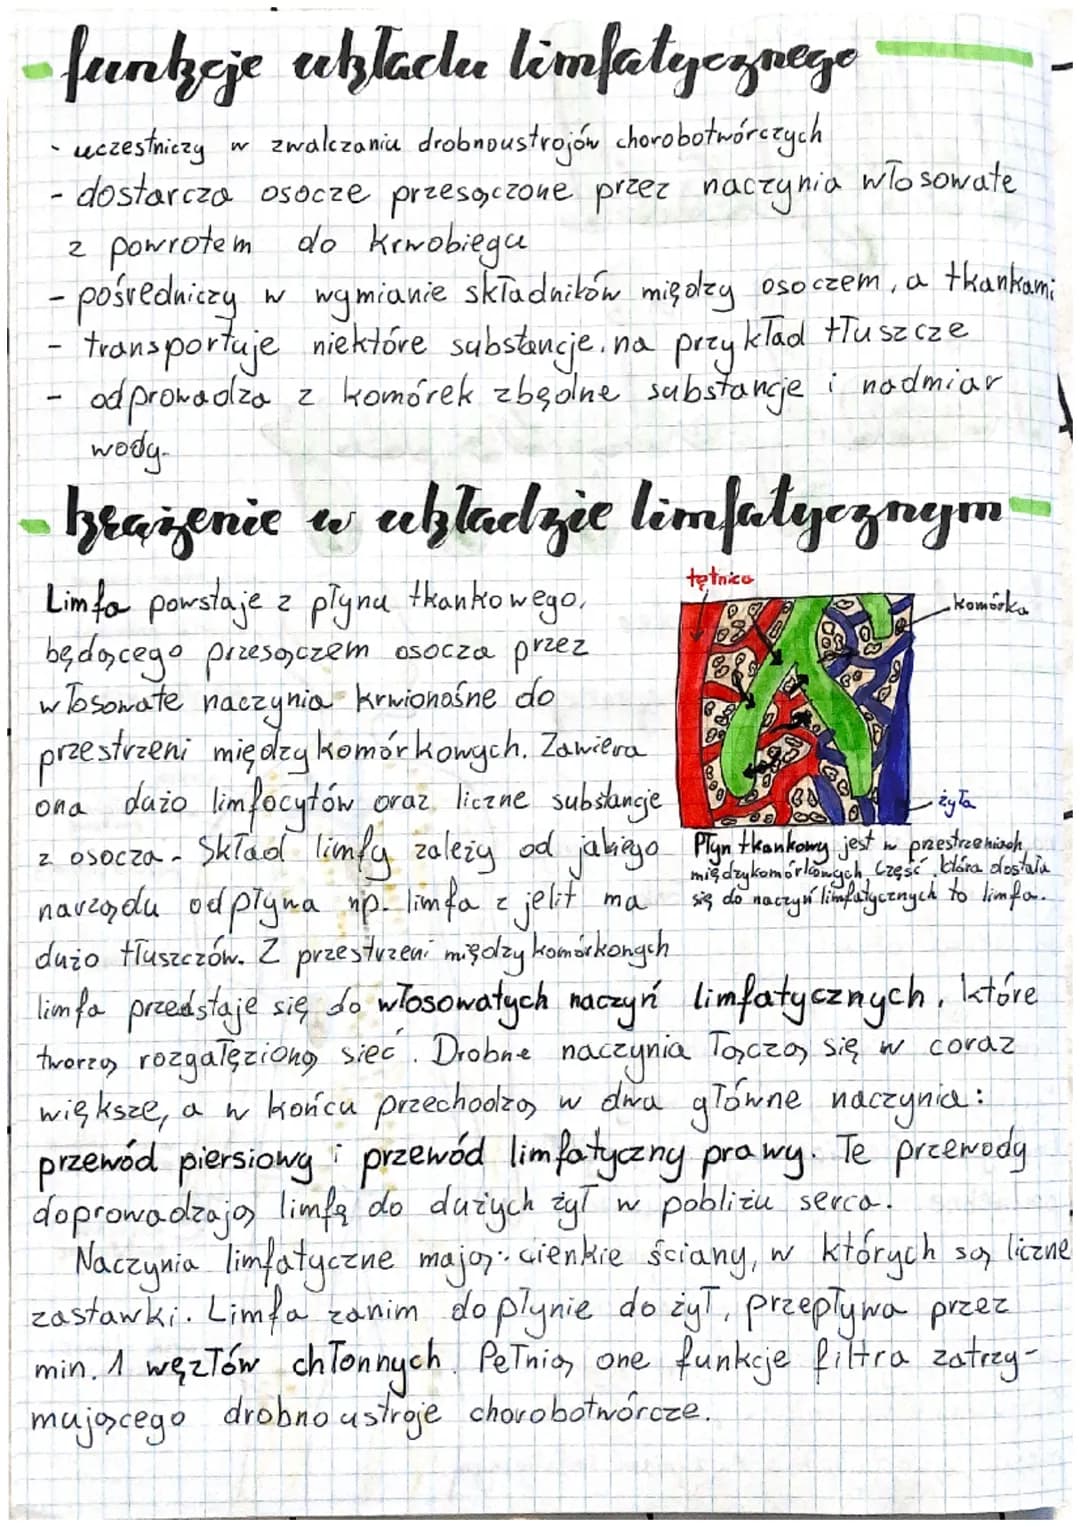 - funkcje układu limfatycznego
- uczestniczy w zwalczaniu drobnoustrojów chorobotwórczych
- dostarcza osocze przesączone przez naczynia włosowate
z powrotem do krwobiegu
- pośredniczy w wymianie składników między osoczem, a tkankami
- transportuje niektóre substancje, na przykład tłuszcze
- odprowadza z komórek zbędne substancje i nadmiar
wody.
- krążenie w układzie limfatycznym
tętnica
komórka
żyła
Płyn tkankowy jest w przestrzeniach
międzykomórkowych. Część, która dostała
się do naczyń limfatycznych to limfa.
Limfa powstaje z płynu tkankowego,
będącego przesączem osocza przez
włosowate naczynia krwionośne do
przestrzeni międzykomórkowych. Zawiera
ona dużo limfocytów oraz liczne substancje
z osocza. Skład limfy zależy od jakiego
narządu odpływa np. limfa z jelit ma
dużo tłuszczów. Z przestrzeni międzykomórkongch
limfa przedstaje się do włosowatych naczyń limfatycznych, które
tworzą rozgałęzioną sieć. Drobne naczynia łączą się w coraz
większe, a w końcu przechodzą w dwa główne naczynia:
przewód piersiowy i przewód limfatyczny prawy. Te przewody
doprowadzają limfę do dużych żył w pobliżu serca.
Naczynia limfatyczne mają cienkie ściany, w których są liczne
zastawki. Limfa zanim dopłynie do żył, przepływa przez
min. 1 węzłów chłonnych. Pełnią one funkcje filtra zatrzy-
mującego drobnoustroje chorobotwórcze.